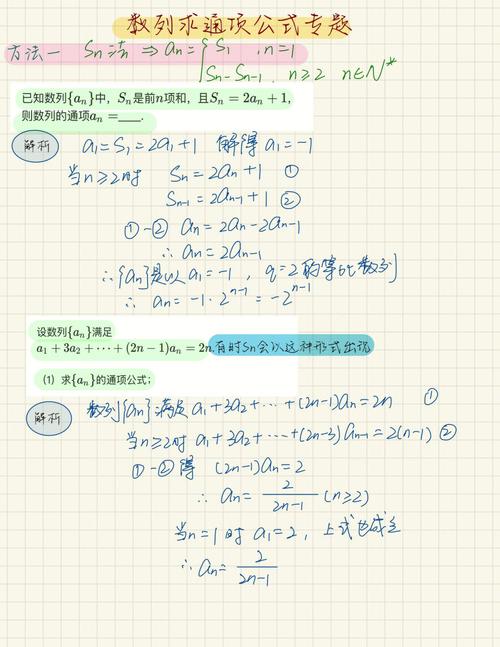 数列求通项公式专题
方法一 Sn法 ⇒ an = { S1 , n=1
Sn-Sn-1 , n≥2 n∈N*
已知数列{an}中，Sn是前n项和，且Sn = 2an + 1,
则数列的通项an =____.
解析 a1=S1=2a1+1 解得 a1=-1
当n≥2时 Sn=2an+1 ①
Sn-1=2an-1+1 ②
①-② an=2an-2an-1
∴ an=2an-1
∴{an}是以 a1=-1 , q=2的等比数列
∴ an=-1·2^{n-1}=-2^{n-1}
设数列{an}满足
a1 + 3a2 + ··· + (2n − 1)an = 2n. 有时Sn会以这种形式出现
(1) 求{an}的通项公式；
解析 数列{an}满足 a1+3a2+···+(2n-1)an=2n ①
当n≥2时 a1+3a2+···+(2n-3)an-1=2(n-1) ②
①-②得 (2n-1)an=2
∴ an= 2/(2n-1) (n≥2)
当n=1时 a1=2 , 上式也成立
∴ an= 2/(2n-1)